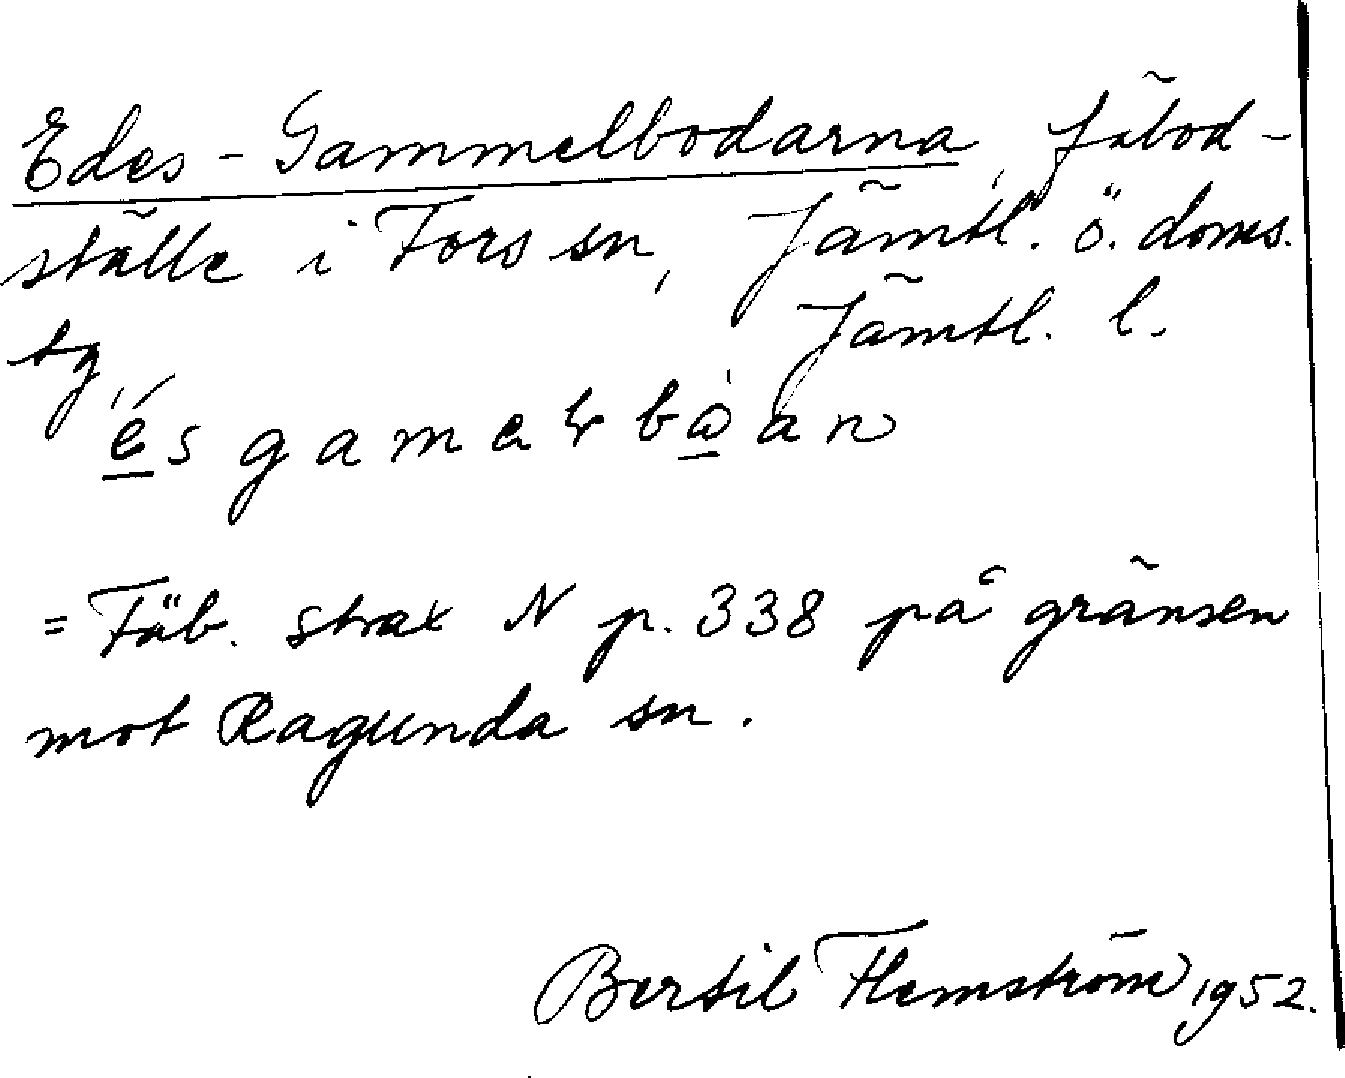 Edes-Gammelbodarna, fäbod-
ställe i Fors sn, Jämtl. ö. doms.
Jämtl. l.
tg
= Fäb. strax N p. 338 på gränsen
mot Ragunda sn.
Bertil Flemström 1952.